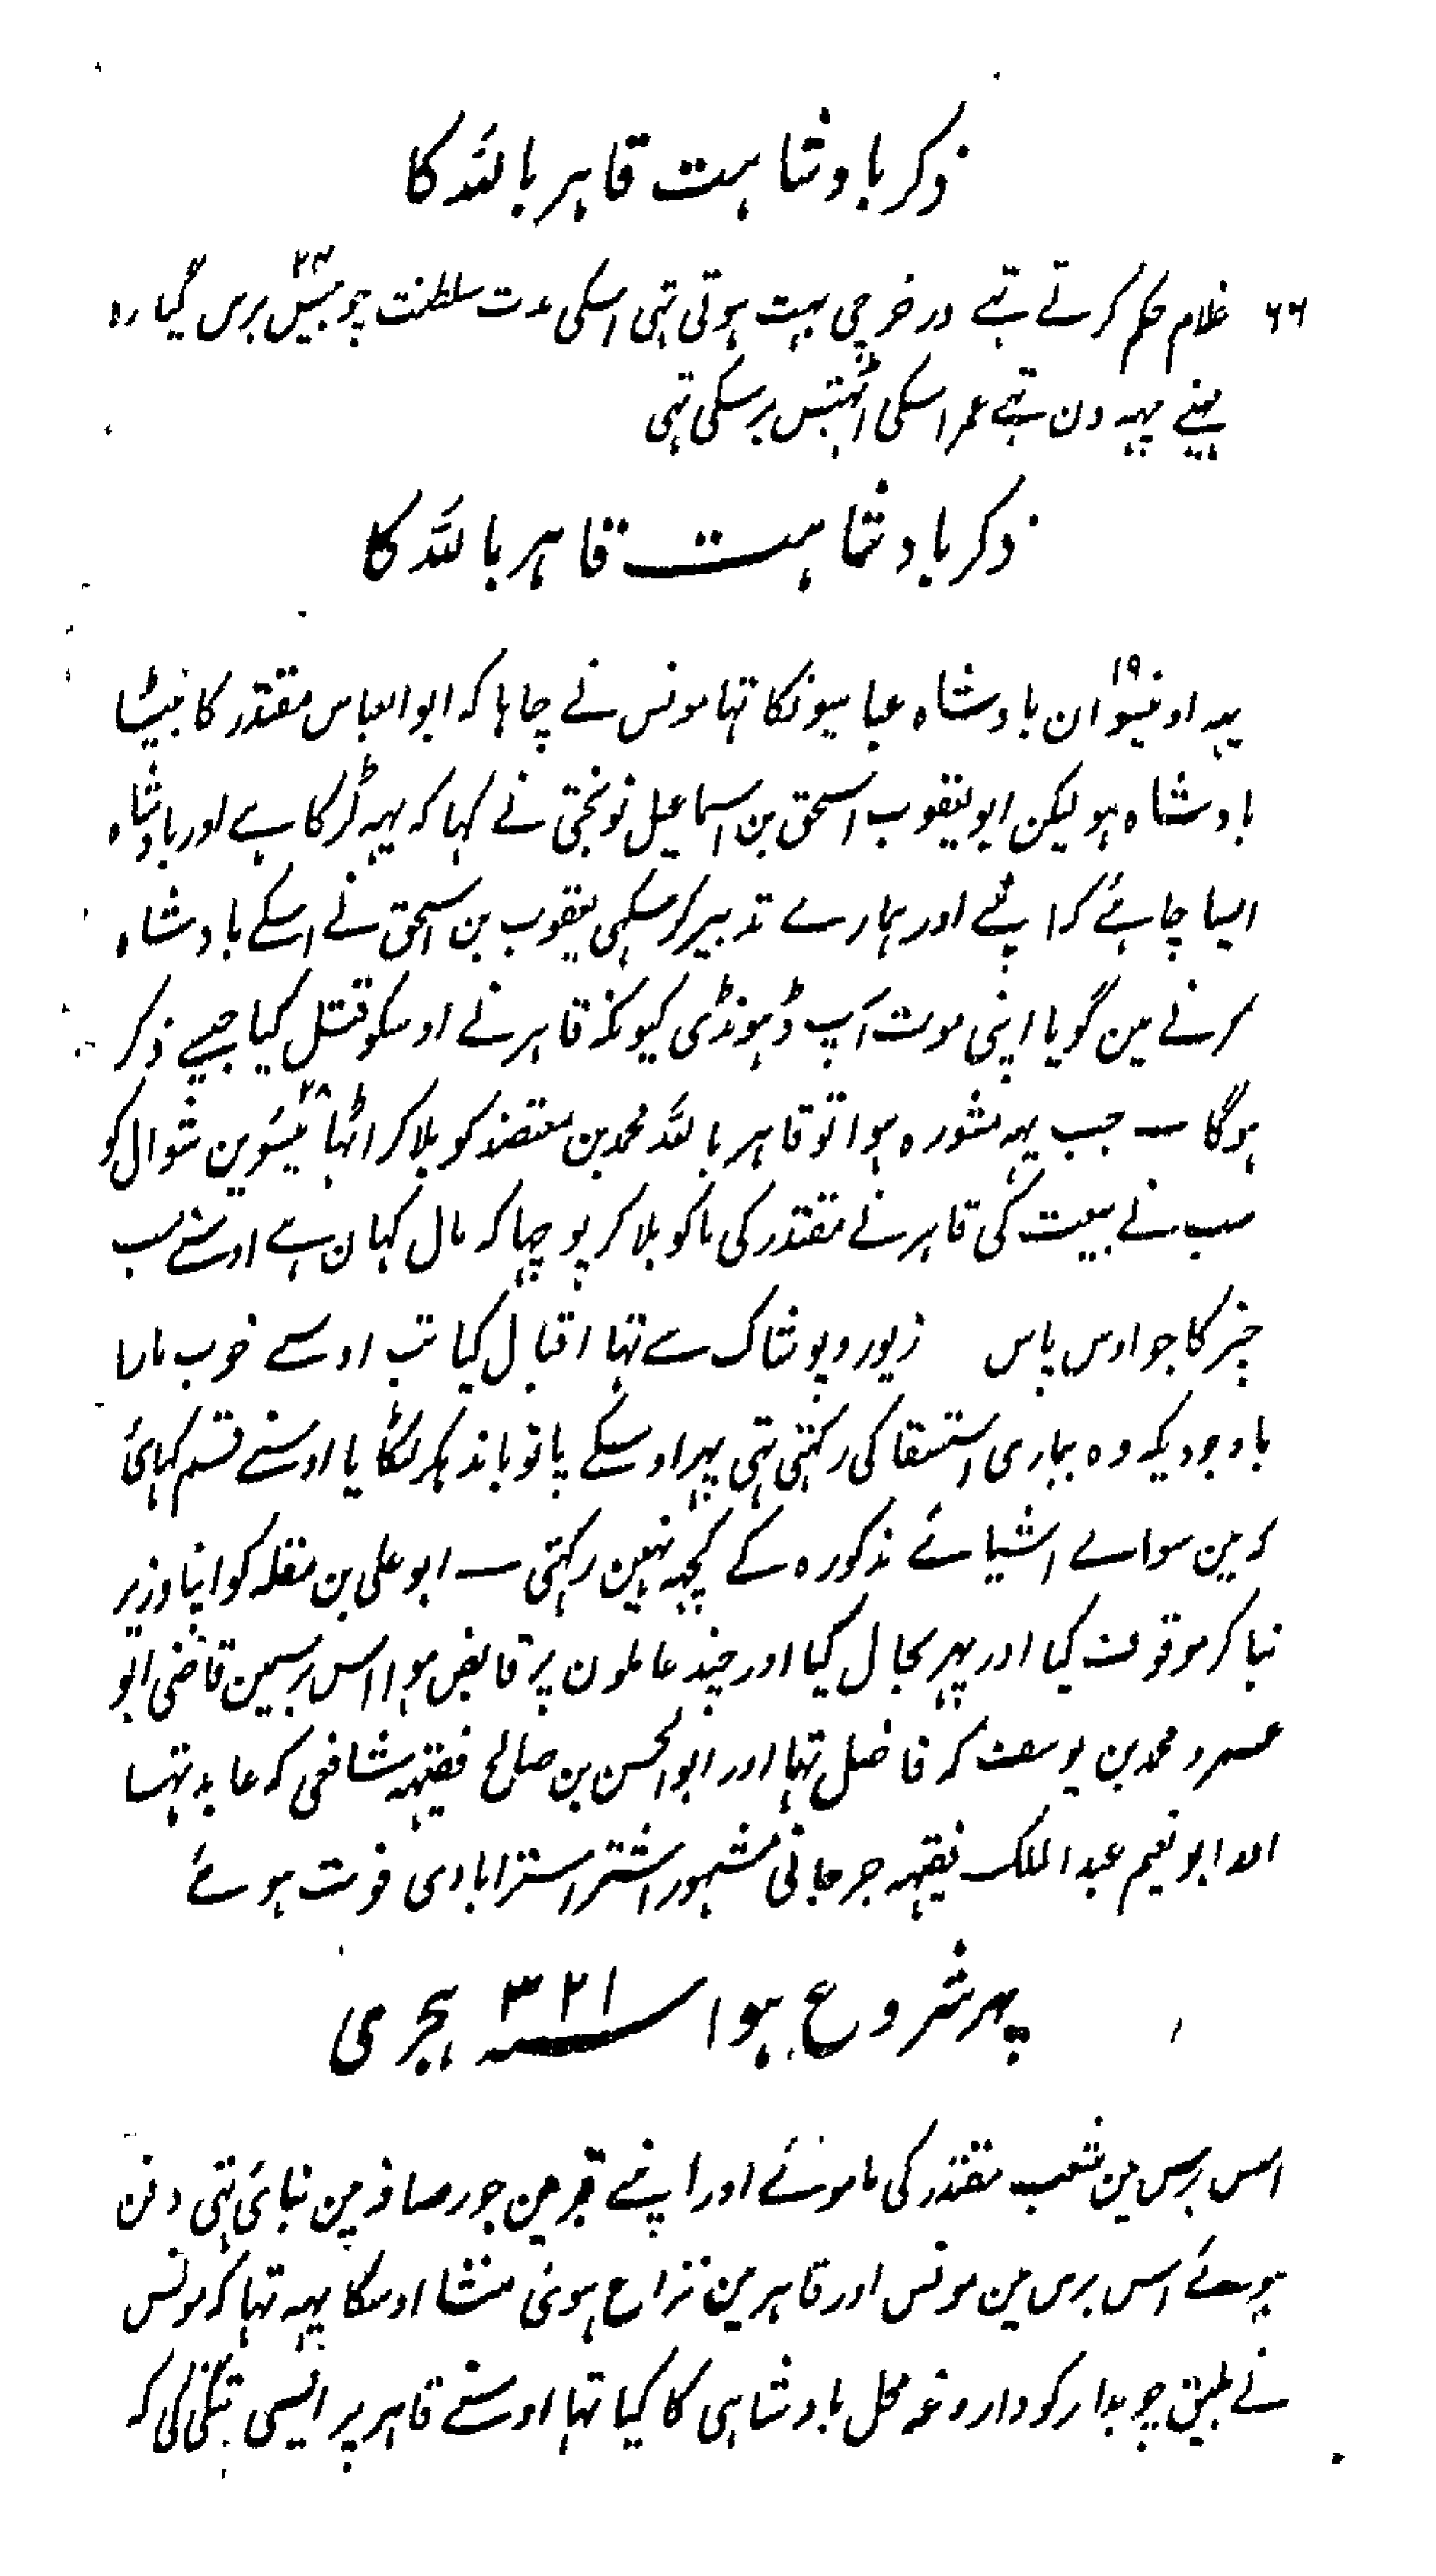 ذکر بادشاہت قاہر باللہ کا
۶۶ غلام حکم کرتے تہے اور خرچی بہت ہوتی تہی اسکی مدت سلطنت چوبیس ۲۴ برس گیارہ
مہنے  دن تہے عمر اسکی اٹہتیس برسکی تہی
ذکر بادشاہت قاہر باللہ کا
یہہ اونیسوان ۱۹ بادشاہ عباسیونکا تہا مونس نے چاہا کہ ابو العباس مقتدر کا بیٹا
بادشاہ ہو لیکن ابو یعقوب اسحق بن اسماعیل نوبختی نے کہا کہ یہہ لڑکا ہے اور بادشاہ
ایسا چاہئے کہ اپنے اور ہمارے تدبیر کر سکہی یعقوب بن اسحق نے اسکے بادشاہ
کرنے مین گویا اپنی موت آپ ڈہونڈی کیونکہ قاہر نے اوسکو قتل کیا جیسے ذکر
ہوگا ـ جب یہہ مشورہ ہوا تو قاہر باللہ محمد بن معتضد کو بلا کر اٹہائیسوین ۲۸ شوال کو
سب نے بیعت کی قاہر نے مقتدر کی ما کو بلا کر پوچہا کہ مال کہان ہے اوسنے سب
چیز کا جو اوس پاس زیور و پوشاک سے تہا اقبال کیا تب اوسے خوب مارا
باوجودیکہ وہ بیماری استسقا کی رکہتی تہی پہر اوسکے پانو باندہکر لٹکایا اوسنے قسم کہائی
کہ مین سوائے اشیائے مذکورہ کے کچہہ نہین رکہتی ـ ابو علی بن مقلہ کو اپنا وزیر
بنا کر موقوف کیا اور پہر بحال کیا اور چند عاملون پر قابض ہوا اس برسمین قاضی ابو
عمرو محمد بن یوسف کہ فاضل تہا اور ابو الحسن بن صالح فقیہہ شافعی کہ عابد تہا
اور ابو نعیم عبد الملک فقیہہ جرجانی مشہور اشتر استرابادی فوت ہوئے
پہر شروع ہوا سنہ ۳۲۱ ہجری
اس برس مین شعب مقتدر کی ما موئے اور اپنے قبر مین جو رصافہ مین بنائی تہی دفن
ہوئے اس برس مین مونس اور قاہر مین نزاع ہوئی منشا اوسکا یہہ تہا کہ مونس
نے بلیق چوبدار کو داروغہ محل بادشاہی کا کیا تہا اوسنے قاہر پر ایسی تنگی کی کہ